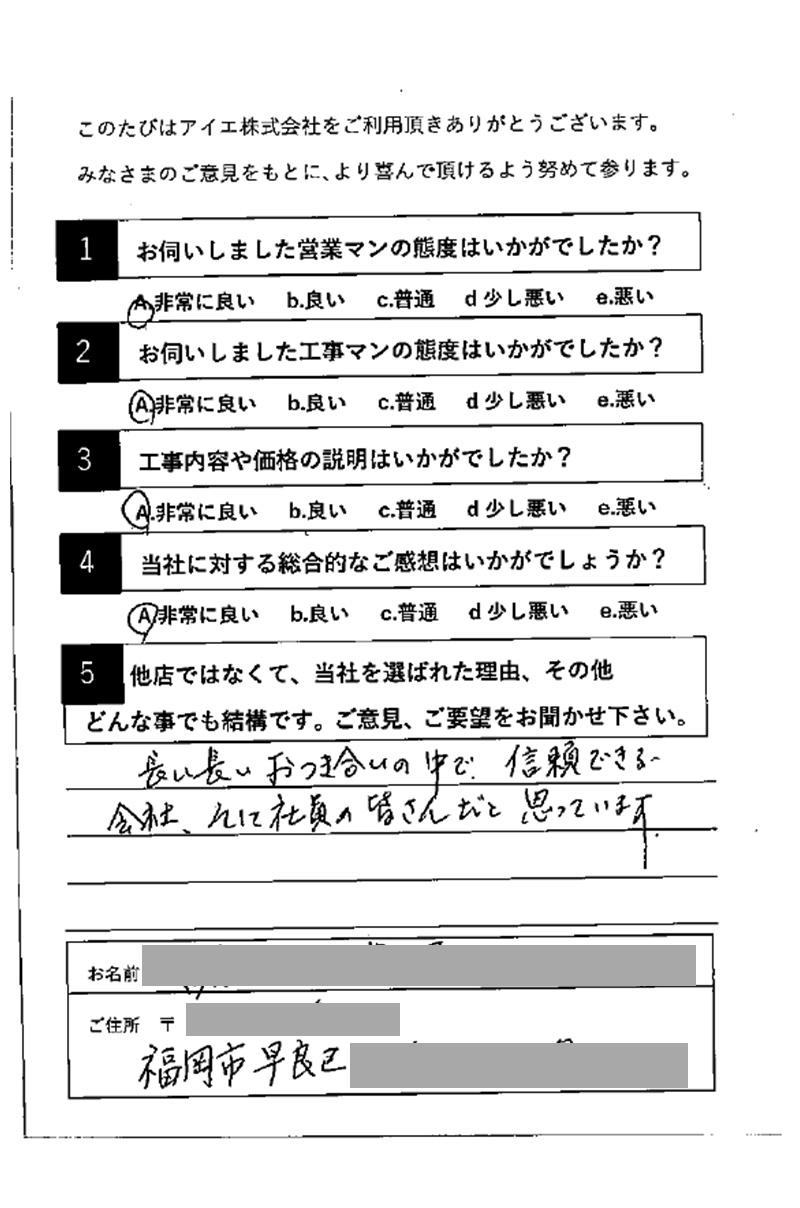 このたびはアイエ株式会社をご利用頂きありがとうございます。
みなさまのご意見をもとに、より喜んで頂けるよう努めて参ります。
1 お伺いしました営業マンの態度はいかがでしたか？
A.非常に良い b.良い c.普通 d 少し悪い e.悪い
2 お伺いしました工事マンの態度はいかがでしたか？
A.非常に良い b.良い c.普通 d 少し悪い e.悪い
3 工事内容や価格の説明はいかがでしたか？
A.非常に良い b.良い c.普通 d 少し悪い e.悪い
4 当社に対する総合的なご感想はいかがでしょうか？
A.非常に良い b.良い c.普通 d 少し悪い e.悪い
5 他店ではなくて、当社を選ばれた理由、その他
どんな事でも結構です。ご意見、ご要望をお聞かせ下さい。
長い長いおつき合いの中で、信頼できる
会社、社員の皆さんだと思っています
お名前
ご住所 〒
福岡市早良区